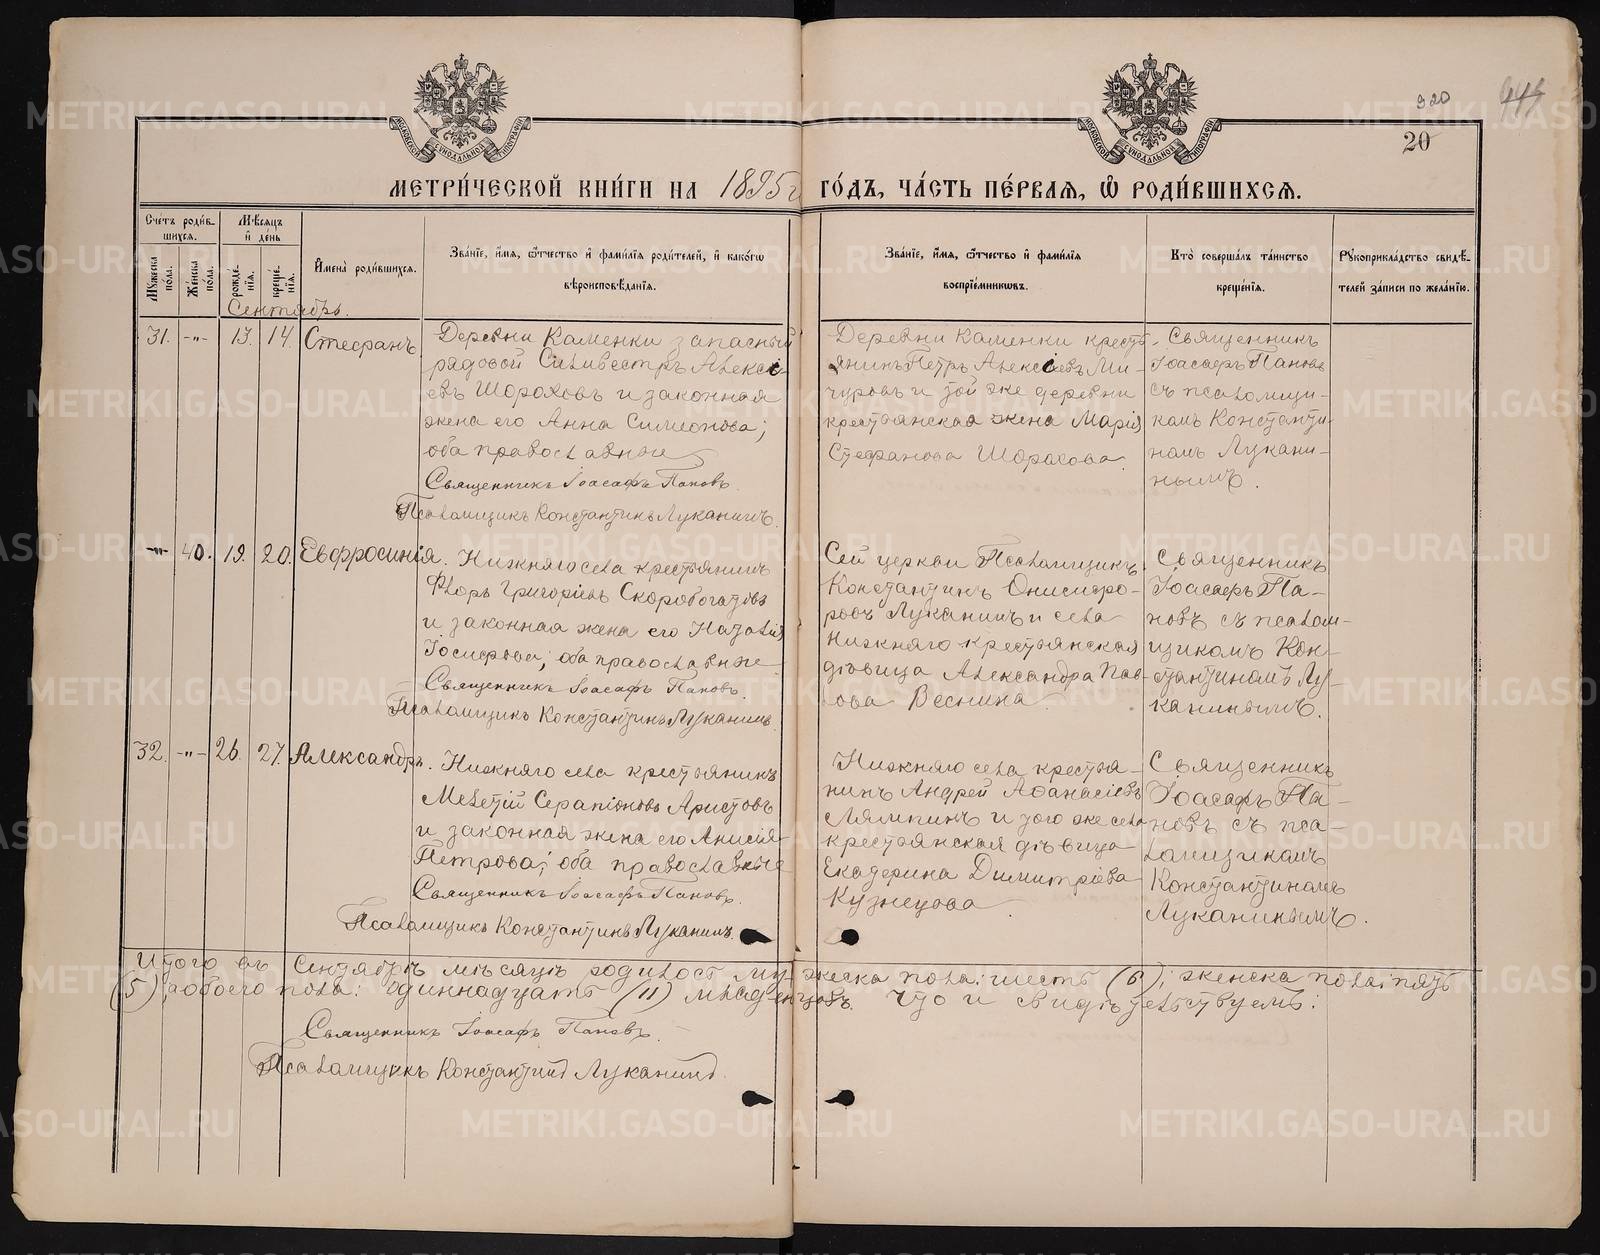 920
20
МОСКОВСКОЙ СѴНОДАЛЬНОЙ ТИПОГРАФІИ
МОСКОВСКОЙ СѴНОДАЛЬНОЙ ТИПОГРАФІИ
МЕТРИ́ЧЕСКОЙ КНИ́ГИ НА 1895 г ГО́ДЪ, ЧА́СТЬ ПЕ́РВАЯ, Ѡ҆ РОДИ́ВШИХСЯ.
Сче́тъ роди́вшихся.
Мꙋ́жеска по́ла.
Же́нска по́ла.
Мѣ́сяцъ и҆ де́нь
рожде́нія.
креще́нія.
И҆мена̀ роди́вшихся.
Зва́ніе, и҆́мя, ѻ҆́тчество и҆ фами́лія роди́телей, и҆ како́гѡ
вѣроисповѣ́данія.
Зва́ніе, и҆́мя, ѻ҆́тчество и҆ фами́лія
воспріе́мникѡвъ.
Кто̀ соверша́лъ та́инство
креще́нія.
Рꙋкоприкла́дство свидѣ́-
телей за́писи по жела́нію.
Сентябрь.
31. -"- 13. 14. Стефанъ
Деревни Каменки запасный
рядовой Сильвестръ Алексѣ-
евъ Шороховъ и законная
жена его Анна Симеонова;
оба православные
Священникъ Іоасафъ Пановъ.
Псаломщикъ Константинъ Луканинъ.
Деревни Каменки кресть-
янинъ Петръ Алексѣевъ Ми-
чуровъ и той же деревни
крестьянская жена Марія
Стефанова Шорохова.
Священникъ
Іоасафъ Пановъ
съ псаломщи-
комъ Константи-
номъ Лукани-
нымъ.
-"- 40. 19. 20. Евфросинія.
Нижняго села крестьянинъ
Флоръ Григорьевъ Скоробогатовъ
и законная жена его Наталія
Іосифова; оба православные
Священникъ Іоасафъ Пановъ.
Псаломщикъ Константинъ Луканинъ.
Сей церкви Псаломщикъ
Константинъ Онисифо-
ровъ Луканинъ и села
Нижняго крестьянская
дѣвица Александра Пав-
лова Веснина
Священникъ
Іоасафъ Па-
новъ съ псалом-
щикомъ Кон-
стантиномъ Лу-
канинымъ.
32. -"- 26. 27. Александръ.
Нижняго села крестьянинъ
Мелетій Серапіоновъ Аристовъ
и законная жена его Анисія
Петрова; оба православные
Священникъ Іоасафъ Пановъ.
Псаломщикъ Константинъ Луканинъ.
Нижняго села крестья-
нинъ Андрей Афанасіевъ
Лямпинъ и того же села
крестьянская дѣвица
Екатерина Димитріева
Кузнецова
Священникъ
Іоасафъ Па-
новъ съ пса-
ломщикомъ
Константиномъ
Луканинымъ.
Итого въ Сентябрѣ мѣсяцѣ родилось мужеска пола: шесть (6); женска пола: пять
(5); обоего пола: одиннадцать (11) младенцовъ. Что и свидѣтельствуемъ:
Священникъ Іоасафъ Пановъ.
Псаломщикъ Константинъ Луканинъ.
METRIKI.GASO-URAL.RU